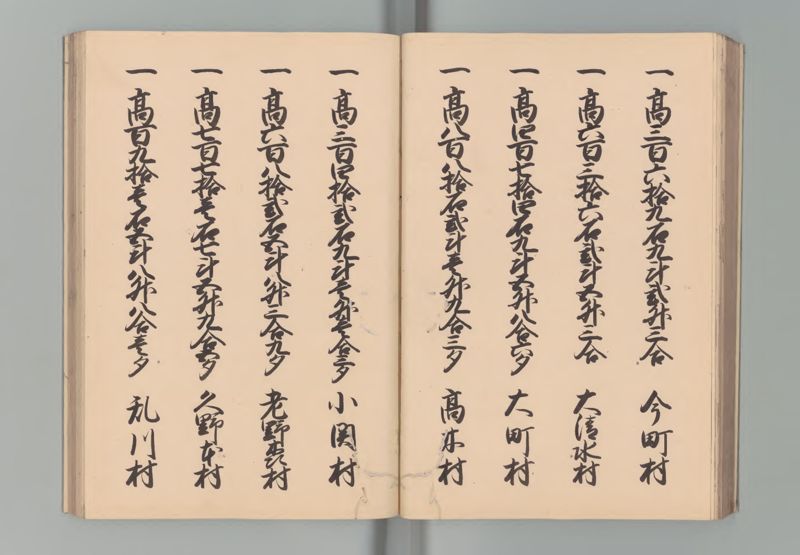 一 髙三百六拾九石九斗弐升三合 今町村
一 髙六百三拾六石弐斗五升三合 大清水村
一 髙四百七拾四石九斗五升八合六夕 大町村
一 髙八百八拾石弐斗壱升九合三夕 髙木村
一 髙三百四拾弐石九斗壱升壱合三夕 小関村
一 髙六百八拾弐石五斗八升三合九夕 老野森村
一 髙七百七拾壱石七斗五升九合五夕 久野本村
一 髙百九拾壱石五斗八升八合壱夕 乱川村